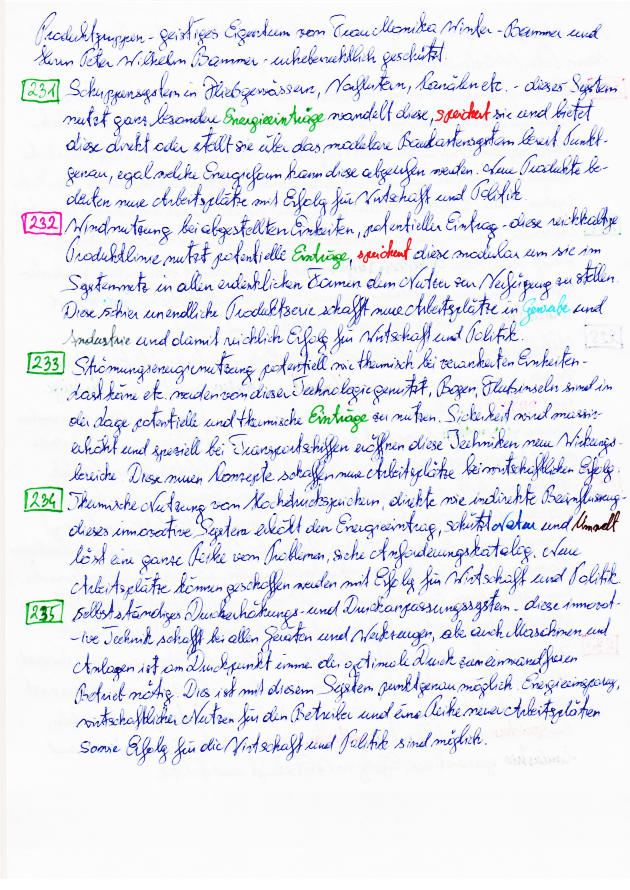 Produktgruppen - geistiges Eigentum von Frau Monika Winter - Bammer und
Herrn Peter Wilhelm Bammer - urheberrechtlich geschützt.
231 Schuppensystem in Fließgewässern, Vorflutern, Kanälen etc. - dieses System
nutzt ganz besondere Energieeinträge wandelt diese, speichert sie und bietet
diese direkt oder stellt sie über das modulare Baukastensystem bereit Punkt-
genau, egal welche Energieform kann diese abgerufen werden. Neue Produkte be-
deuten neue Arbeitsplätze mit Erfolg für Wirtschaft und Politik.
232 Windnutzung bei abgestellten Einheiten, potentieller Eintrag - diese reichhaltige
Produktlinie nutzt potentielle Einträge, speichert diese modular um sie im
Systemnetz in allen erdenklichen Formen dem Nutzer zur Verfügung zu stellen.
Diese schier unendliche Produktserie schafft neue Arbeitsplätze in Gewerbe und
Industrie und damit reichlich Erfolg für Wirtschaft und Politik.
233 Strömungsenergienutzung potentiell wie thermisch bei verankerten Einheiten -
Lastkähne etc. werden von dieser Technologie genutzt, Bogen, Flutinseln sind in
der Lage potentielle und thermische Einträge zu nutzen. Sicherheit wird massiv
erhöht und speziell bei Transportschiffen eröffnen diese Techniken neue Wirkungs-
bereiche Diese neuen Konzepte schaffen neue Arbeitsplätze bei wirtschaftlichen Erfolg.
234 Thermische Nutzung von Hochdruckspeichern, direkte wie indirekte Beeinflussung -
dieses innovative System erhöht den Energieeintrag, schützt Natur und Umwelt
löst eine ganze Reihe von Problemen, siehe Anforderungskatalog. Neue
Arbeitsplätze können geschaffen werden mit Erfolg für Wirtschaft und Politik.
235 Selbstständiges Druckerhöhungs- und Druckanpassungssystem - diese innovat-
-ive Technik schafft bei allen Geräten und Werkzeugen, aber auch Maschinen und
Anlagen ist am Druckpunkt immer der optimale Druck zum einwandfreien
Betrieb nötig. Dies ist mit diesem System punktgenau möglich. Energieeinsparung,
wirtschaftlicher Nutzen für den Betreiber und eine Reihe neuer Arbeitsplätzen
sowie Erfolg für die Wirtschaft und Politik sind möglich.